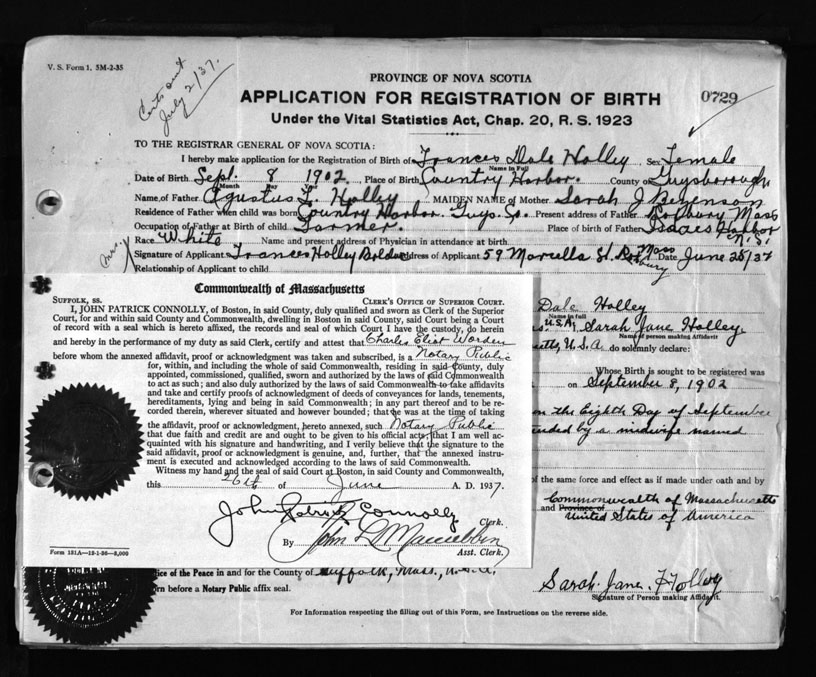 V. S. Form 1. 5M-2-35
Certs out
July 2/37.
PROVINCE OF NOVA SCOTIA
APPLICATION FOR REGISTRATION OF BIRTH
0729
Under the Vital Statistics Act, Chap. 20, R. S. 1923
TO THE REGISTRAR GENERAL OF NOVA SCOTIA:
I hereby make application for the Registration of Birth of Frances Dale Holley Sex Female
Name in Full
Date of Birth Sept. 8 1902 Place of Birth Country Harbor. County of Guysborough
Month Day Year
Name of Father Agustus L. Holley MAIDEN NAME of Mother Sarah J
Residence of Father when child was born Country Harbor. Guys. Co. Present address of Father Roxbury Mass
Occupation of Father at Birth of child Farmer. Place of birth of Father Isaacs Harbor
N.S.
Race White Name and present address of Physician in attendance at birth
Mrs.
Signature of Applicant Frances Holley Address of Applicant 59 Marcella St. Roxbury Mass Date June 25/37
Relationship of Applicant to child
Commonwealth of Massachusetts
SUFFOLK, SS. CLERK'S OFFICE OF SUPERIOR COURT.
I, JOHN PATRICK CONNOLLY, of Boston, in said County, duly qualified and sworn as Clerk of the Superior
Court, for and within said County and Commonwealth, dwelling in Boston in said County, said Court being a Court
of record with a seal which is hereto affixed, the records and seal of which Court I have the custody, do herein
and hereby in the performance of my duty as said Clerk, certify and attest that Charles Eliot Worden
before whom the annexed affidavit, proof or acknowledgment was taken and subscribed, is a Notary Public
for, within, and including the whole of said Commonwealth, residing in said County, duly
appointed, commissioned, qualified, sworn and authorized by the laws of said Commonwealth
to act as such; and also duly authorized by the laws of said Commonwealth to take affidavits
and take and certify proofs of acknowledgment of deeds of conveyances for lands, tenements,
hereditaments, lying and being in said Commonwealth; in any part thereof and to be re-
corded therein, wherever situated and however bounded; that he was at the time of taking
the affidavit, proof or acknowledgment, hereto annexed, such Notary Public
that due faith and credit are and ought to be given to his official acts; that I am well ac-
quainted with his signature and handwriting, and I verily believe that the signature to the
said affidavit, proof or acknowledgment is genuine, and, further, that the annexed instru-
ment is executed and acknowledged according to the laws of said Commonwealth.
Witness my hand and the seal of said Court at Boston, in said County and Commonwealth,
this 26th of June A. D. 1937.
John Patrick Connolly Clerk.
By John L Asst. Clerk.
Form 181A—12-1-36—3,000
Dale Holley
Name in full
U.S.A. Sarah Jane Holley.
Name of person making Affidavit
U.S.A. do solemnly declare:
Whose Birth is sought to be registered was
on September 8, 1902
on the Eighth Day of September
ended by a midwife named
of the same force and effect as if made under oath and by
Commonwealth of Massachusetts
and Province of
United States of America
ice of the Peace in and for the County of Suffolk, Mass., U.S.A.
rn before a Notary Public affix seal.
Sarah. Jane. Holley
Signature of Person making Affidavit.
For Information respecting the filling out of this Form, see Instructions on the reverse side.